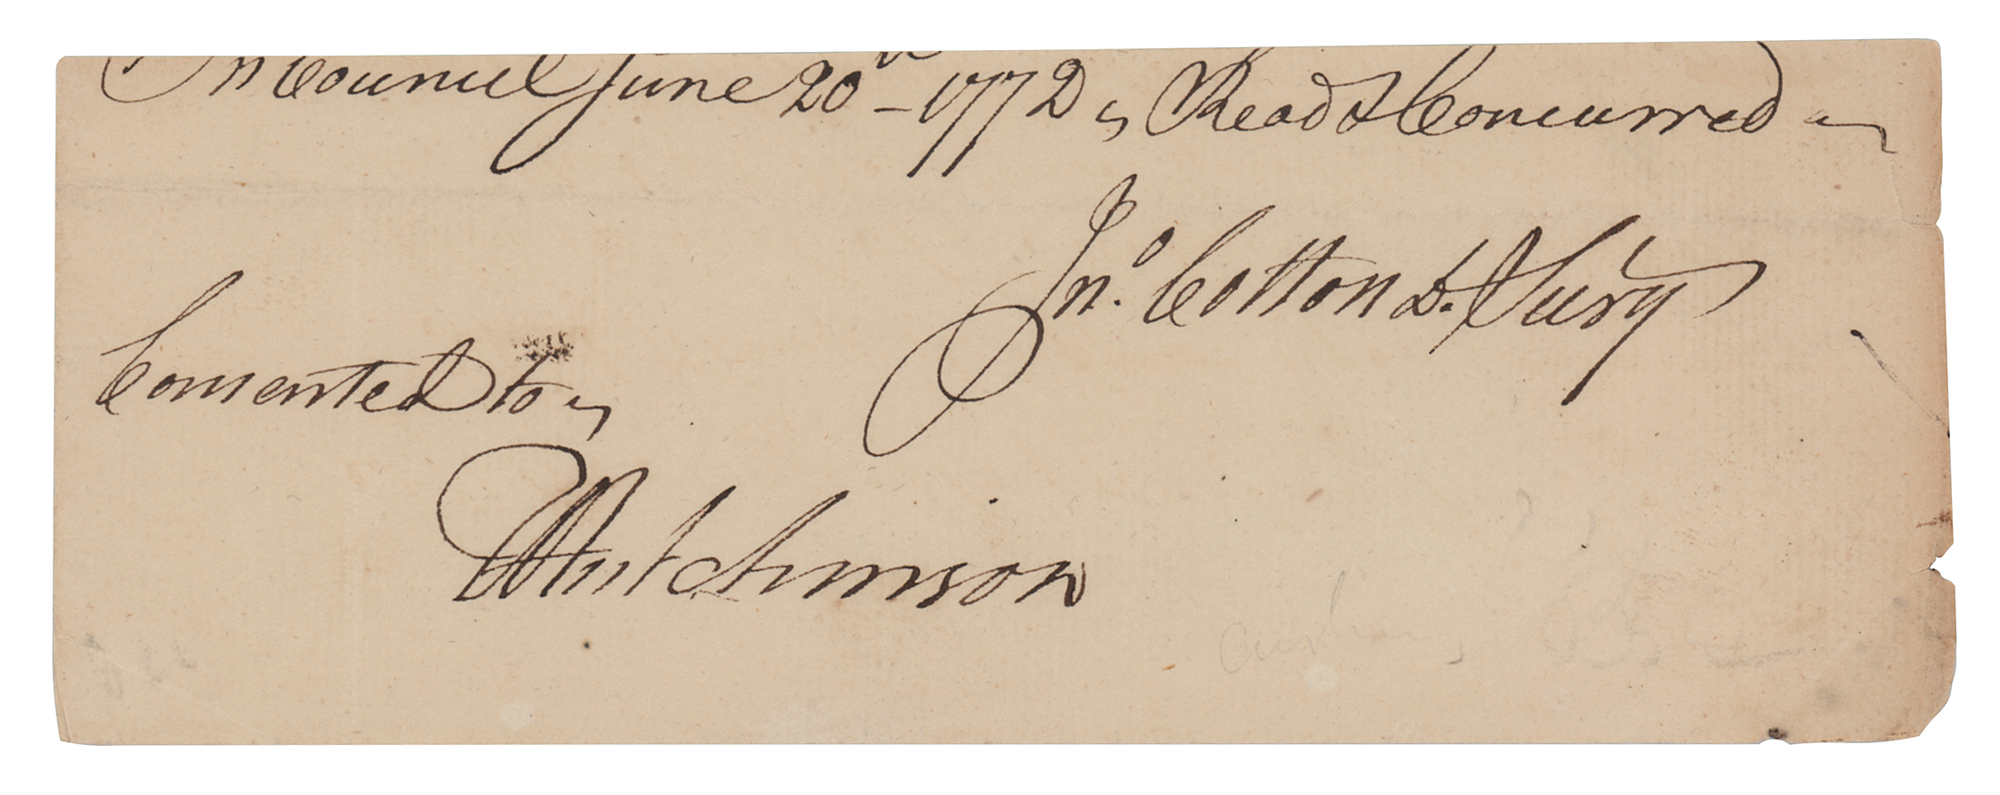 In Council June 20th - 1772, Read & Concurred
Jno. Cotton D. Secry
Consented to
THutchinson